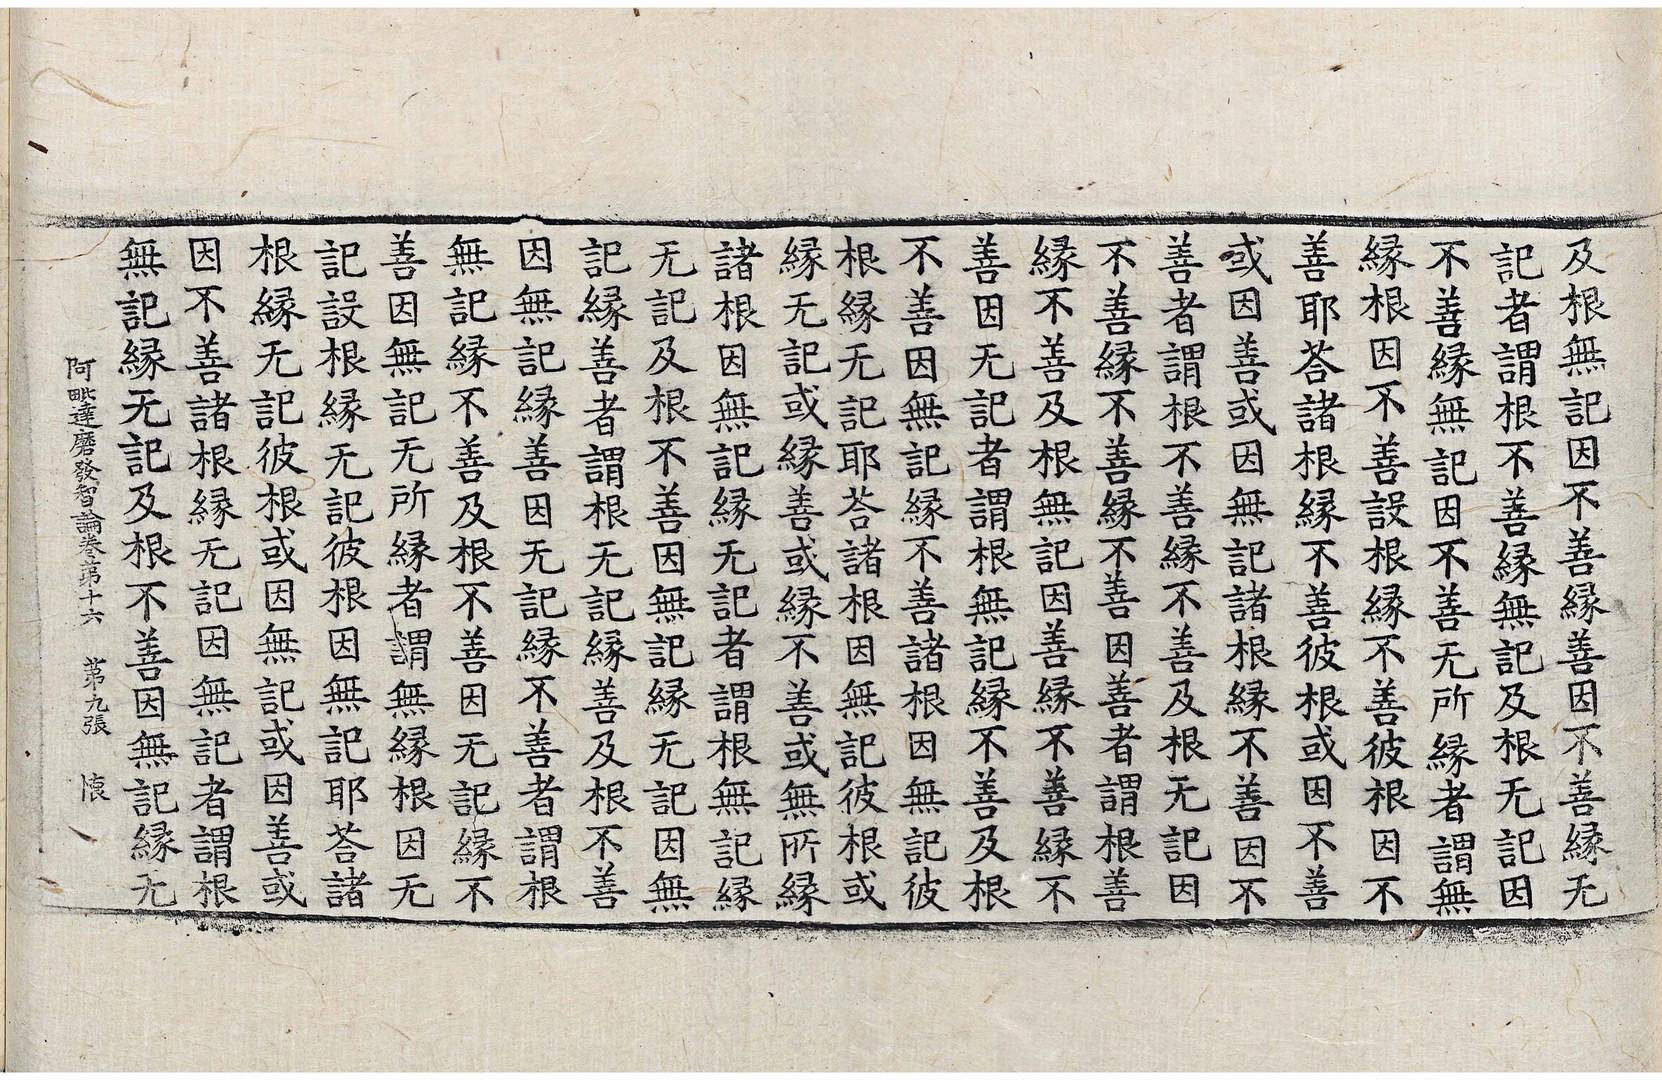 及根無記因不善縁善因不善縁无
記者謂根不善縁無記及根无記因
不善縁無記因不善无所縁者謂無
縁根因不善設根縁不善彼根因不
善耶荅諸根縁不善彼根或因不善
或因善或因無記諸根縁不善因不
善者謂根不善縁不善及根无記因
不善縁不善縁不善因善者謂根善
縁不善及根無記因善縁不善縁不
善因无記者謂根無記縁不善及根
不善因無記縁不善諸根因無記彼
根縁无記耶荅諸根因無記彼根或
縁无記或縁善或縁不善或無所縁
諸根因無記縁无記者謂根無記縁
无記及根不善因無記縁无記因無
記縁善者謂根无記縁善及根不善
因無記縁善因无記縁不善者謂根
無記縁不善及根不善因无記縁不
善因無記无所縁者謂無縁根因无
記設根縁无記彼根因無記耶荅諸
根縁无記彼根或因無記或因善或
因不善諸根縁无記因無記者謂根
無記縁无記及根不善因無記縁无
阿毗達磨發智論卷苐十六　苐九張　懐